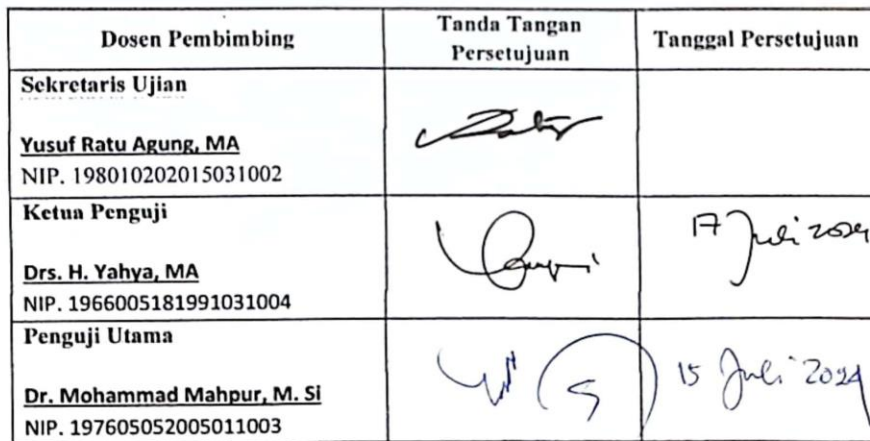 Dosen Pembimbing
Tanda Tangan
Persetujuan
Tanggal Persetujuan
Sekretaris Ujian
Yusuf Ratu Agung, MA
NIP. 198010202015031002
Ketua Penguji
Drs. H. Yahya, MA
NIP. 1966005181991031004
17 Juli 2024
Penguji Utama
Dr. Mohammad Mahpur, M. Si
NIP. 197605052005011003
15 Juli 2024